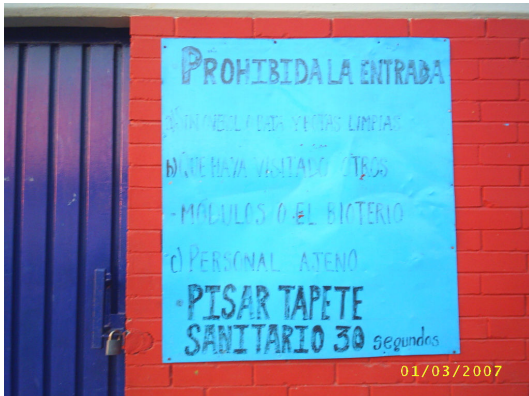 PROHIBIDA LA ENTRADA
a) SIN OVEROL O BATA Y BOTAS LIMPIAS
b) QUE HAYA VISITADO OTROS
- MÓDULOS O EL BIOTERIO
c) PERSONAL AJENO
• PISAR TAPETE
SANITARIO 30 segundos
01/03/2007